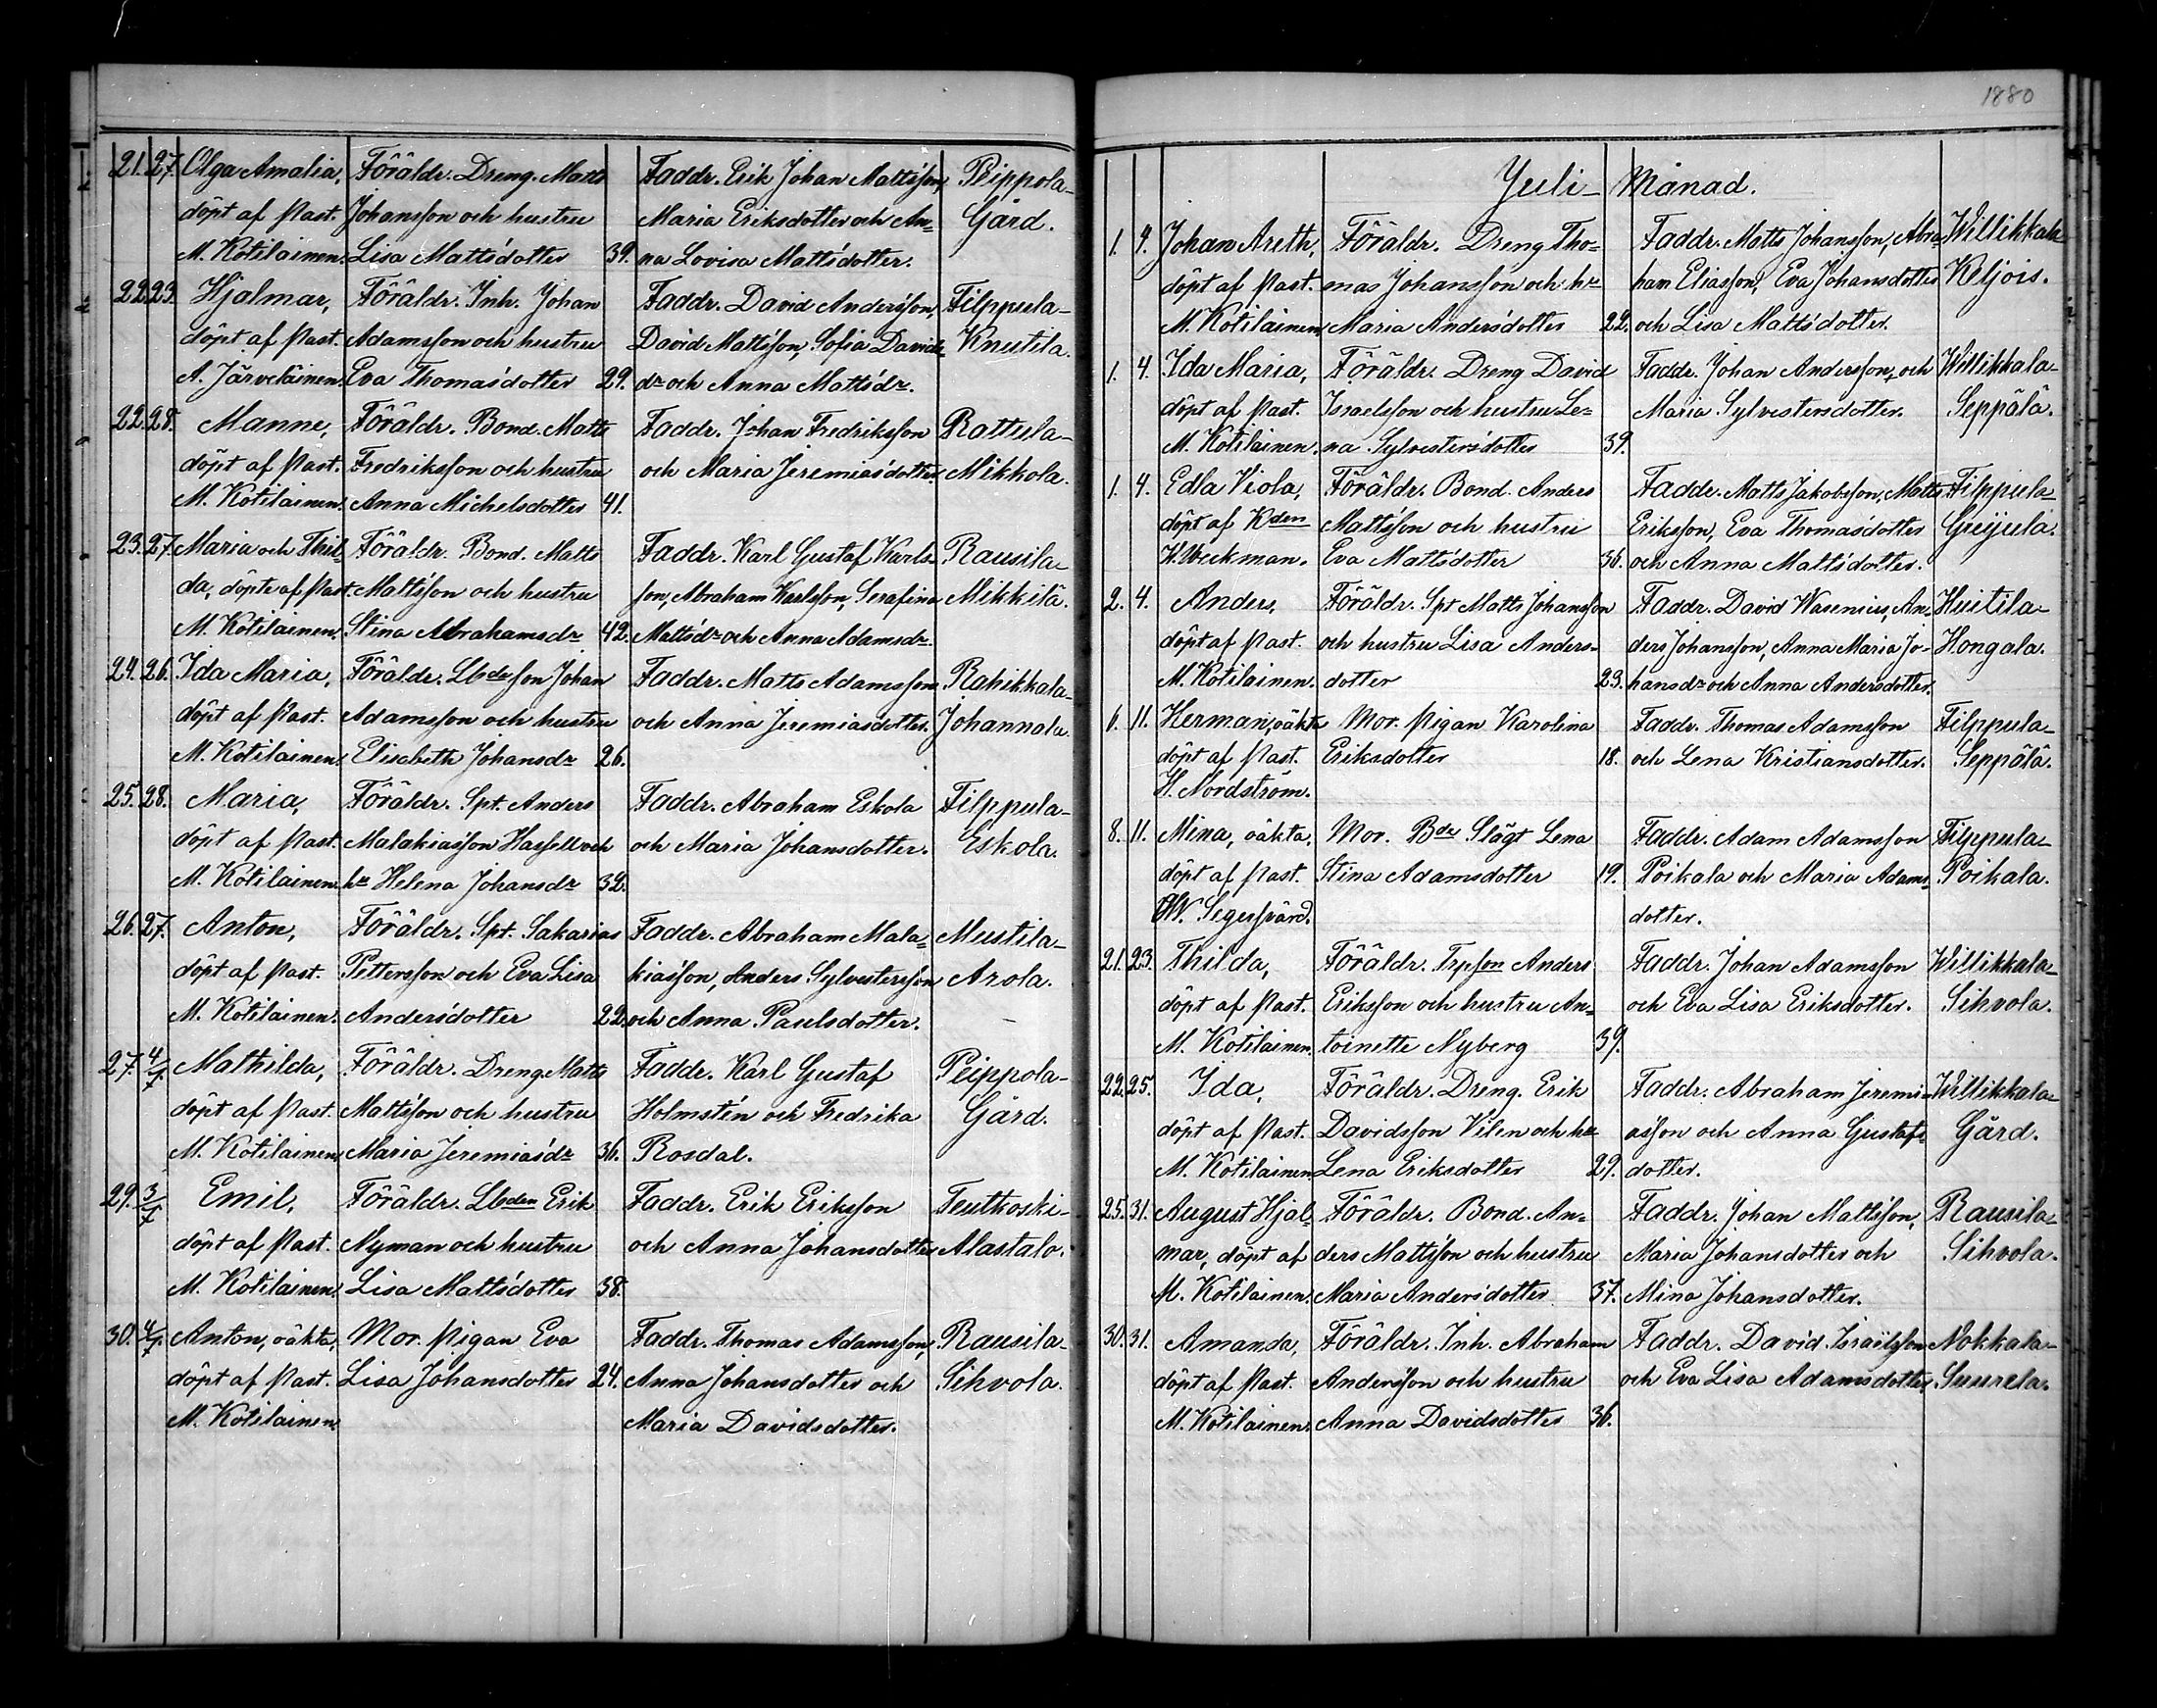 21. 27. Olga Amalia, Föräldr. Dreng. Matts Faddr. Erik Johan Mattsson, Peippola-
döpt af Past. Johansson och hustru Maria Eriksdotter och An= Gård.
M. Kotilainen. Lisa Mattsdotter 39. na Lovisa Mattsdotter.
22. 23. Hjalmar, Föräldr. Inh. Johan Faddr. David Andersson, Filppula-
döpt af Past. Adamsson och hustru David Mattsson, Sofia Davids= Knutila.
A. Järveläinen. Eva Thomasdotter 29. dr och Anna Mattsdr.
22. 28. Manne, Föräldr. Bond. Matts Faddr. Johan Fredriksson Rattula-
döpt af Past. Fredriksson och hustru och Maria Jeremiasdotter. Mikkola.
M. Kotilainen. Anna Michelsdotter 41.
23. 27. Maria och Thil= Föräldr. Bond. Matts Faddr. Karl Gustaf Karls= Rausila-
da, döpte af Past. Mattsson och hustru son, Abraham Karlsson, Serafina Mikkilä.
M. Kotilainen. Stina Abrahamsdr 42. Mattsdr och Anna Adamsdr.
24. 26. Ida Maria, Föräldr. Lbdesson Johan Faddr. Matts Adamsson Rahikkala-
döpt af Past. Adamsson och hustru och Anna Jeremiasdotter. Johannala.
M. Kotilainen. Elisabeth Johansdr 26.
25. 28. Maria, Föräldr. Spt. Anders Faddr. Abraham Eskola Filppula-
döpt af Past. Malakiasson Hassell och och Maria Johansdotter. Eskola.
M. Kotilainen. hr Helena Johansdr 32.
26. 27. Anton, Föräldr. Spt. Sakarias Faddr. Abraham Mala= Mustila-
döpt af Past. Pettersson och Eva Lisa kiasson, Anders Sylvestersson Arola.
M. Kotilainen. Andersdotter 22. och Anna Paulsdotter.
27. 4/7. Mathilda, Föräldr. Dreng. Matts Faddr. Karl Gustaf Peippola-
döpt af Past. Mattsson och hustru Holmstén och Fredrika Gård.
M. Kotilainen. Maria Jeremiasdr 36. Rosdal.
29. 3/7 Emil, Föräldr. Lbden Erik Faddr. Erik Eriksson Teutkoski-
döpt af Past. Nyman och hustru och Anna Johansdotter Alastalo.
M. Kotilainen. Lisa Mattsdotter 38.
30. 4/7. Anton, oäkta, Mor. Pigan Eva Faddr. Thomas Adamsson, Rausila-
döpt af Past. Lisa Johansdotter 24. Anna Johansdotter och Sihvola.
M. Kotilainen. Maria Davidsdotter.
1880
Juli- Månad.
1. 4. Johan Areth, Föräldr. Dreng Tho= Faddr. Matts Johansson, Abra= Willikkala-
döpt af Past. mas Johansson och hr ham Eliasson, Eva Johansdotter Keljois.
M. Kotilainen. Maria Andersdotter 22. och Lisa Mattsdotter.
1. 4. Ida Maria, Föräldr. Dreng David Faddr. Johan Andersson, och Willikkala-
döpt af Past. Israelsson och hustru Le= Maria Sylvestersdotter. Seppälä.
M. Kotilainen. na Sylvestersdotter 39.
1. 4. Edla Viola, Föräldr. Bond. Anders Faddr. Matts Jakobsson, Matts Filppula-
döpt af Kden Mattsson och hustru Eriksson, Eva Thomasdotter Greijula.
K. Weckman. Eva Mattsdotter 36. och Anna Mattsdotter.
2. 4. Anders, Föräldr. Spt Matts Johansson Faddr. David Wasenius, An= Huitila-
döpt af Past. och hustru Lisa Anders= ders Johansson, Anna Maria Jo- Hongala.
M. Kotilainen. dotter 23. hansdr och Anna Andersdotter.
6. 11. Herman, oäkta Mor. Pigan Karolina Faddr. Thomas Adamsson Filppula-
döpt af Past. Eriksdotter 18. och Lena Kristiansdotter. Seppälä.
H. Nordström.
8. 11. Mina, oäkta, Mor. Bde Slägt Lena Faddr. Adam Adamsson Filppula-
döpt af Past. Stina Adamsdotter 19. Poikala och Maria Adams= Poikala.
W. Segersvärd. dotter.
21. 23. Thilda, Föräldr. Trpson Anders Faddr. Johan Adamsson Willikkala-
döpt af Past. Eriksson och hustru An= och Eva Lisa Eriksdotter. Sihvola.
M. Kotilainen. toinette Nyberg 39.
22. 25. Ida, Föräldr. Dreng. Erik Faddr. Abraham Jeremi= Willikkala-
döpt af Past. Davidsson Vilen och hr asson och Anna Gustafs= Gård.
M. Kotilainen. Lena Eriksdotter 29. dotter.
25. 31. August Hjal= Föräldr. Bond. An= Faddr. Johan Mattsson, Rausila-
mar, döpt af ders Mattsson och hustru Maria Johansdotter och Sihvola.
M. Kotilainen. Maria Andersdotter 37. Mina Johansdotter.
30. 31. Amanda, Föräldr. Inh. Abraham Faddr. David Israelsson Nokkala-
döpt af Past. Andersson och hustru och Eva Lisa Adamsdotter. Suurela.
M. Kotilainen. Anna Davidsdotter 36.